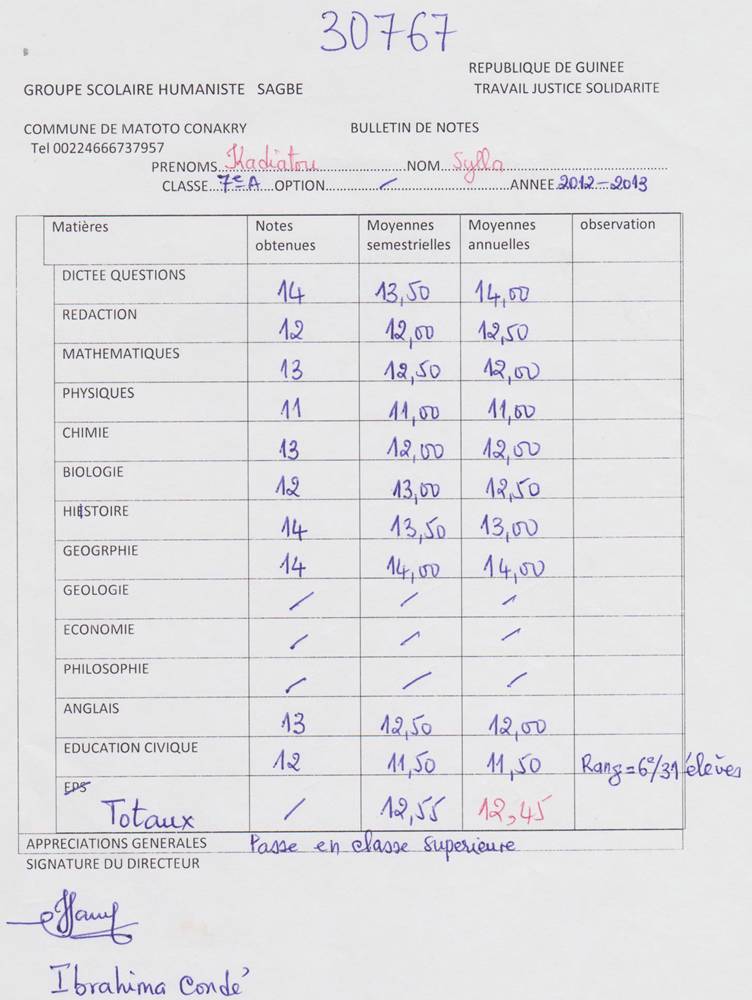 30767
REPUBLIQUE DE GUINEE
GROUPE SCOLAIRE HUMANISTE SAGBE TRAVAIL JUSTICE SOLIDARITE
COMMUNE DE MATOTO CONAKRY BULLETIN DE NOTES
Tel 00224666737957
PRENOMS Kadiatou NOM Sylla
CLASSE 7e A OPTION / ANNEE 2012-2013
Matières Notes obtenues Moyennes semestrielles Moyennes annuelles observation
DICTEE QUESTIONS 14 13,50 14,00
REDACTION 12 12,00 12,50
MATHEMATIQUES 13 12,50 12,00
PHYSIQUES 11 11,00 11,00
CHIMIE 13 12,00 12,00
BIOLOGIE 12 13,00 12,50
HIESTOIRE 14 13,50 13,00
GEOGRPHIE 14 14,00 14,00
GEOLOGIE / / /
ECONOMIE / / /
PHILOSOPHIE / / /
ANGLAIS 13 12,50 12,00
EDUCATION CIVIQUE 12 11,50 11,50 Rang = 6e/31 élèves
EPS
Totaux / 12,55 12,45
APPRECIATIONS GENERALES Passe en classe Superieure
SIGNATURE DU DIRECTEUR
Ibrahima Condé